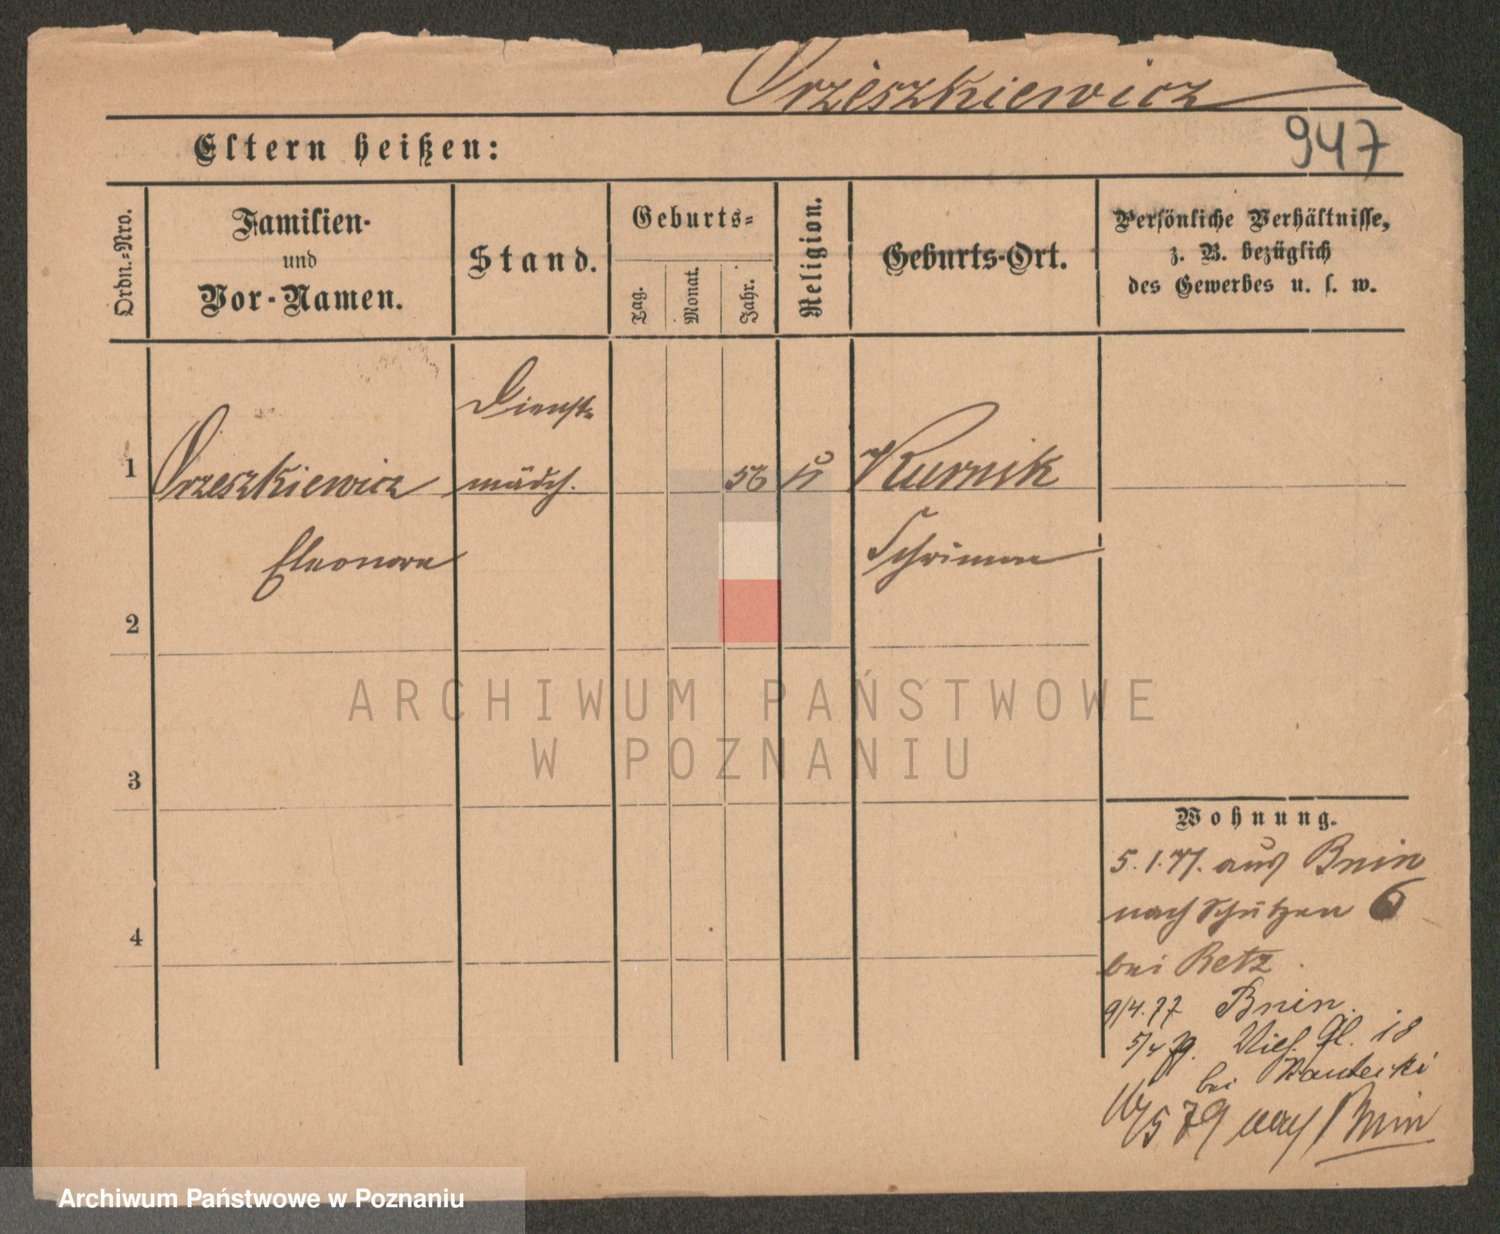 Orzeszkiewicz
947
Eltern heißen:
Ordn.-Nro.
Familien-
und
Vor-Namen.
Stand.
Geburts-
Tag.
Monat.
Jahr.
Religion.
Geburts-Ort.
Persönliche Verhältnisse,
z. B. bezüglich
des Gewerbes u. s. w.
Dienst-
1 Orzeszkiewicz mädch. 56 k Kurnik
Eleonora Schrimm
2
3
4
Wohnung.
5. 1. 77. aus Bnin
nach Schützen 6
bei Retz
9/4. 77 Bnin.
5/4 79. Gl. 18
bei
5 79 nach Bnin
ARCHIWUM PAŃSTWOWE
W POZNANIU
Archiwum Państwowe w Poznaniu